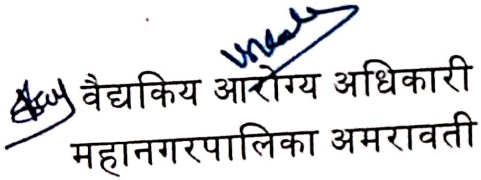 वैद्यकिय आरोग्य अधिकारी
महानगरपालिका अमरावती